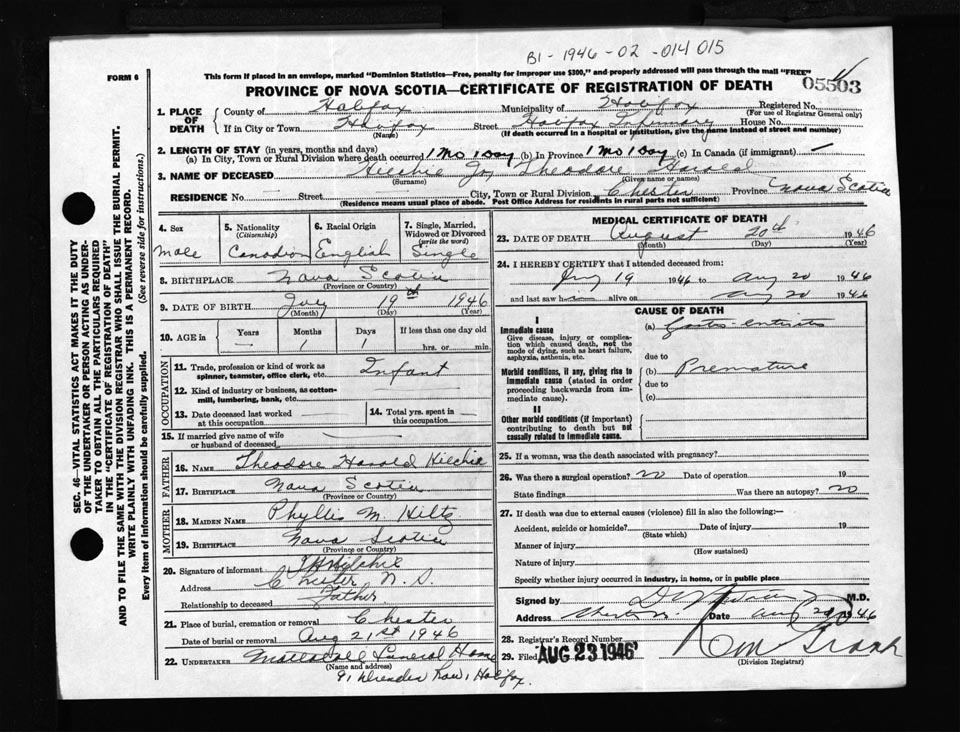 B1-1946-02-014015
FORM 6
This form if placed in an envelope, marked "Dominion Statistics—Free, penalty for improper use $300," and properly addressed will pass through the mail "FREE"
PROVINCE OF NOVA SCOTIA—CERTIFICATE OF REGISTRATION OF DEATH
05503
1. PLACE OF DEATH
County of Halifax Municipality of Halifax Registered No.
(For use of Registrar General only)
If in City or Town Halifax Street Halifax Infirmary House No.
(Name) (If death occurred in a hospital or institution, give the name instead of street and number)
2. LENGTH OF STAY (in years, months and days)
(a) In City, Town or Rural Division where death occurred 1 Mo 1 Day (b) In Province 1 Mo 1 Day (c) In Canada (if immigrant) —
3. NAME OF DECEASED Joy Theodore Harold
(Surname) (Given name or names)
RESIDENCE No. Street City, Town or Rural Division Chester Province Nova Scotia
(Residence means usual place of abode. Post Office Address for residents in rural parts not sufficient)
4. Sex
Male
5. Nationality (Citizenship)
Canadian
6. Racial Origin
English
7. Single, Married, Widowed or Divorced (write the word)
Single
8. BIRTHPLACE Nova Scotia
(Province or Country)
9. DATE OF BIRTH July 19th 1946
(Month) (Day) (Year)
10. AGE in Years Months Days If less than one day old
— 1 1 hrs. or min.
OCCUPATION
11. Trade, profession or kind of work as spinner, teamster, office clerk, etc. Infant
12. Kind of industry or business, as cotton-mill, lumbering, bank, etc.
13. Date deceased last worked at this occupation
14. Total yrs. spent in this occupation
15. If married give name of wife or husband of deceased
FATHER
16. NAME Theodore Harold
17. BIRTHPLACE Nova Scotia
(Province or Country)
MOTHER
18. MAIDEN NAME Phyllis M. Hiltz
19. BIRTHPLACE Nova Scotia
(Province or Country)
20. Signature of informant
Address Chester N. S.
Relationship to deceased Father
21. Place of burial, cremation or removal Chester
Date of burial or removal Aug 21st 1946
22. UNDERTAKER Funeral Home
(Name and address)
91 Dresden Row, Halifax.
MEDICAL CERTIFICATE OF DEATH
23. DATE OF DEATH August 20th 1946
(Month) (Day) (Year)
24. I HEREBY CERTIFY that I attended deceased from:
19 1946 to Aug 20 1946
and last saw him alive on Aug 20 1946
CAUSE OF DEATH
I
Immediate cause
Give disease, injury or complication which caused death, not the mode of dying, such as heart failure, asphyxia, asthenia, etc.
(a) Gastro-enteritis
due to
Morbid conditions, if any, giving rise to immediate cause (stated in order proceeding backwards from immediate cause).
(b) Premature
due to
(c)
II
Other morbid conditions (if important) contributing to death but not causally related to immediate cause.
25. If a woman, was the death associated with pregnancy?
26. Was there a surgical operation? no Date of operation 19
State findings Was there an autopsy? no
27. If death was due to external causes (violence) fill in also the following:—
Accident, suicide or homicide? Date of injury 19
(State which)
Manner of injury
(How sustained)
Nature of injury
Specify whether injury occurred in industry, in home, or in public place
Signed by M.D.
Address Date Aug 20 1946
28. Registrar's Record Number
29. Filed AUG 23 1946
(Division Registrar)
SEC. 46—VITAL STATISTICS ACT MAKES IT THE DUTY OF THE UNDERTAKER OR PERSON ACTING AS UNDERTAKER TO OBTAIN ALL THE PARTICULARS REQUIRED IN THE "CERTIFICATE OF REGISTRATION OF DEATH"
AND TO FILE THE SAME WITH THE DIVISION REGISTRAR WHO SHALL ISSUE THE BURIAL PERMIT.
WRITE PLAINLY WITH UNFADING INK. THIS IS A PERMANENT RECORD.
Every item of information should be carefully supplied. (See reverse side for instructions.)